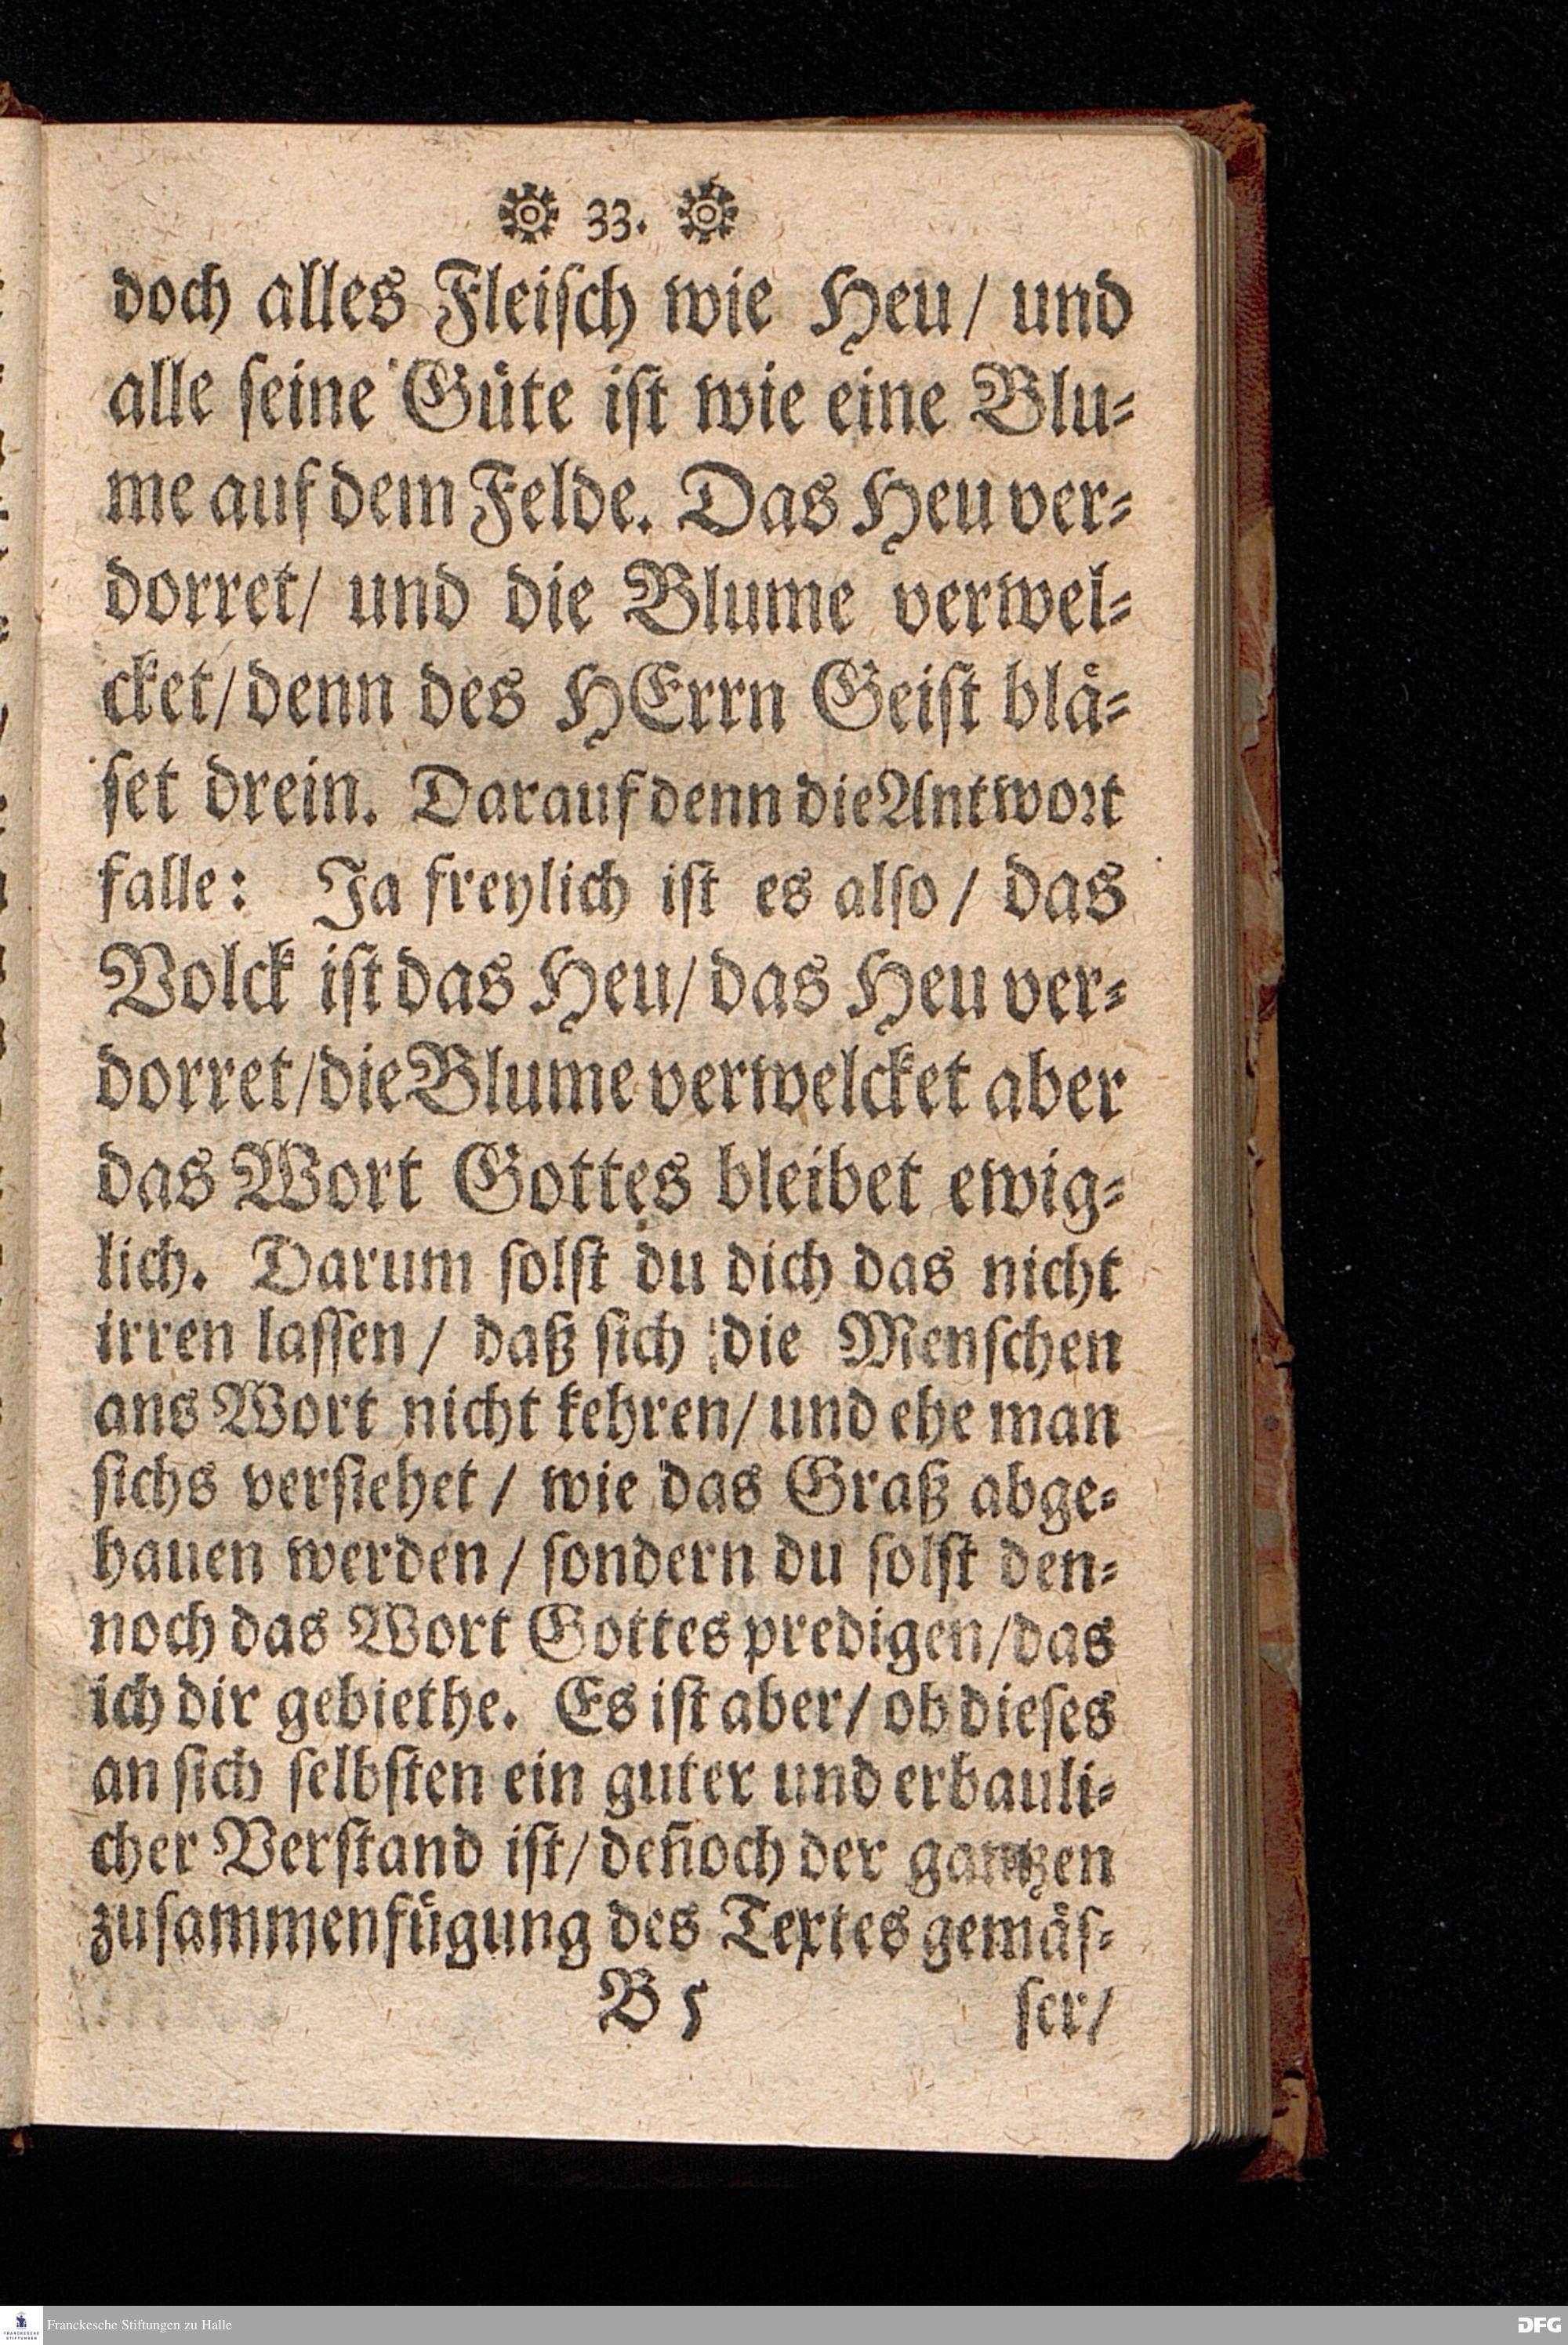 33.
doch alles Fleisch wie Heu/ und
alle seine Güte ist wie eine Blu-
me auf dem Felde. Das Heu ver-
dorret/ und die Blume verwel-
cket/ denn des HErrn Geist blä-
set drein. Darauf denn die Antwort
falle: Ja freylich ist es also/ das
Volck ist das Heu/ das Heu ver-
dorret/ die Blume verwelcket aber
das Wort Gottes bleibet ewig-
lich. Darum solst du dich das nicht
irren lassen/ daß sich die Menschen
ans Wort nicht kehren/ und ehe man
sichs versiehet/ wie das Graß abge-
hauen werden/ sondern du solst den-
noch das Wort Gottes predigen/ das
ich dir gebiethe. Es ist aber/ ob dieses
an sich selbsten ein guter und erbauli-
cher Verstand ist/ deñoch der gantzen
zusammenfügung des Textes gemäs-
B 5 ser/
FRANCKESCHE STIFTUNGEN
Franckesche Stiftungen zu Halle
DFG